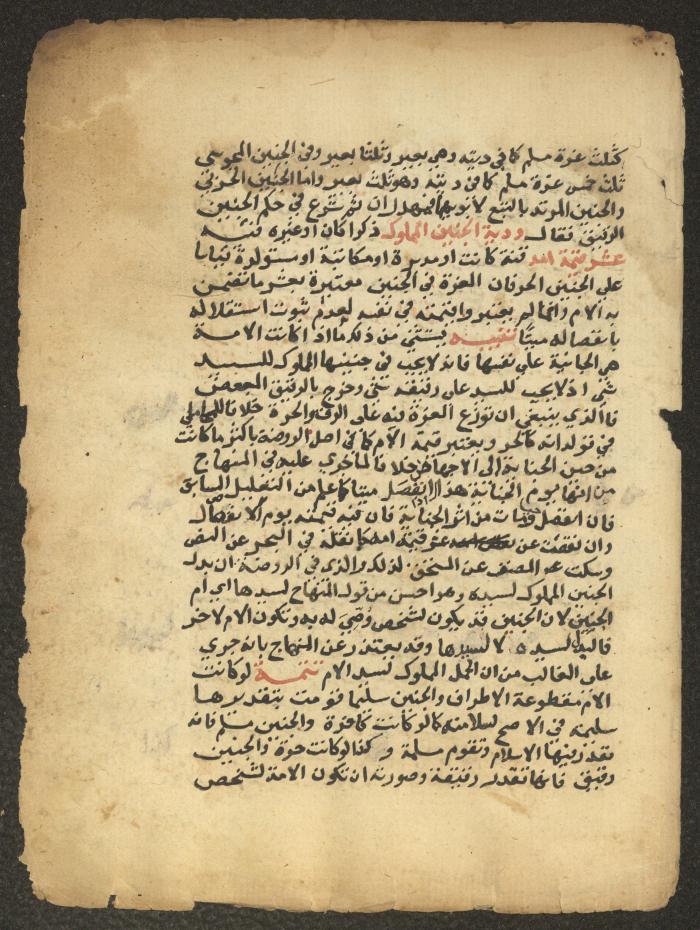 كثلث غرة مسلم كما في ديته وهي بعير وثلثا بعير وفي الجنين المجوسي
ثلث خمس غرة مسلم كما في ديته وهو ثلث بعير واما الجنين الحربي
والجنين المرتد بالتبع لابويهما فمهدران ثم شرع في حكم الجنين
الرقيق فقال ودية الجنين المملوك ذكرا كان او غيره فيه
عشر قيمة امه قنة كانت او مدبرة او مكاتبة او مستولدة قياسا
علي الجنين الحر فان الغرة في الجنين معتبرة بعشر ما تضمن
به الام وانما لم يعتبر واقيمته في نفسه لعدم ثبوت استقلاله
بانفصاله ميتا تنبيه يستثني من ذلك ما اذا كانت الامة
هي الجانية علي نفسها فانه لا يجب في جنينها المملوك للسيد
شئ اذ لا يجب للسيد علي رقيقه شئ وخرج بالرقيق المبعض
فالذي ينبغي ان توزع الغرة فيه علي الرق والحرية خلافا للمحاملي
في قوله انه كالحر ويعتبر قيمة الام كما في اصل الروضة باكثر ما كانت
من حين الجناية الي الاجهاض خلافا لما جري عليه في المنهاج
من انها يوم الجناية هذا اذا انفصل ميتا كما علم من التعليل السابق
فان انفصل حيا ومات من اثر الجناية فان فيه قيمته يوم الانفصال
وان نقصت عن عشر قيمة امه كما نقله في البحر عن النص
وسكت المصنف عن المستحق لذلك والذي في الروضة ان بدل
الجنين المملوك لسيده وهو احسن من قول المنهاج لسيدها اي ام
الجنين لان الجنين قد يكون لشخص وصي له به وتكون الام لاخر
فالبدل لسيده لا لسيدها وقد يعتذر عن المنهاج بانه جري
علي الغالب من ان الحمل المملوك لسيد الام تتمة لو كانت
الام مقطوعة الاطراف والجنين سليما قومت بتقديرها
سليمة في الاصح لسلامته كما لو كانت كافرة والجنين مسلم فانه
يقدر فيها الاسلام وتقوم مسلمة وكذا لو كانت حرة والجنين
رقيق فانها تقدر رقيقة وصورته ان تكون الامة لشخص